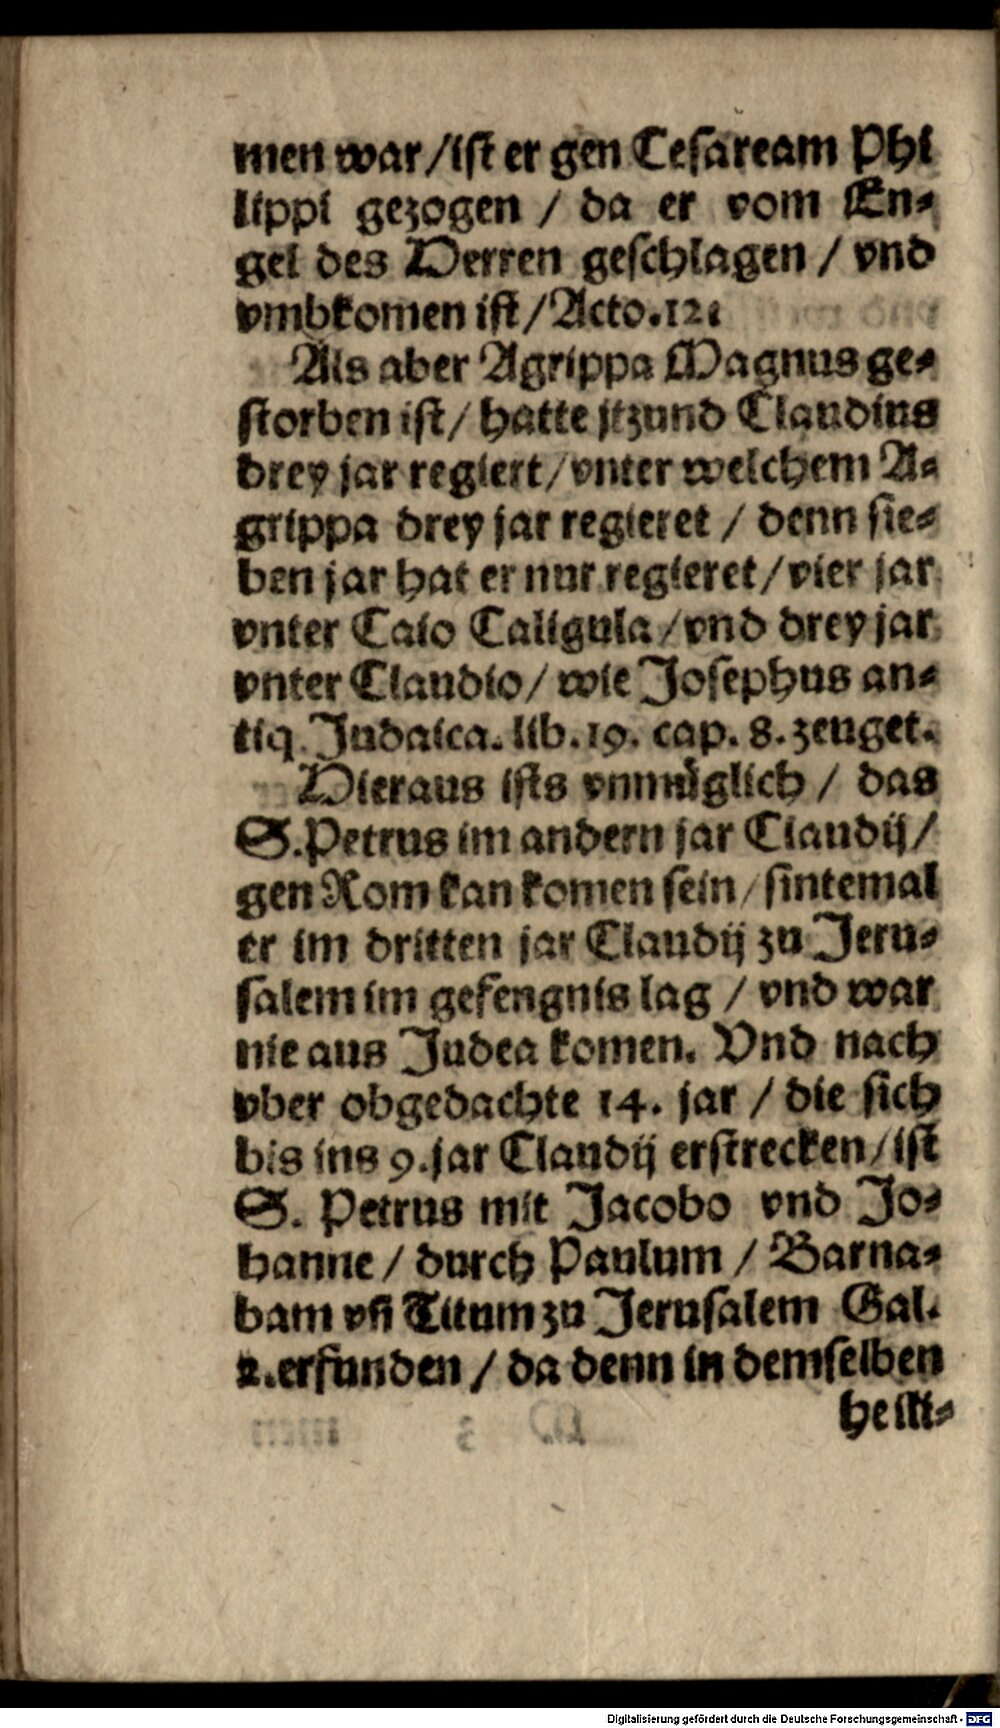 men war/ist er gen Cesaream Phi
lippi gezogen / da er vom En⸗
gel des Herren geschlagen / vnd
vmbkomen ist/Acto.12.
Als aber Agrippa Magnus ge⸗
storben ist/ hatte jtzund Claudius
drey jar regiert/vnter welchem A⸗
grippa drey jar regieret / denn sie⸗
ben jar hat er nur regieret/vier jar
vnter Caio Caligula/vnd drey jar
vnter Claudio/ wie Josephus an⸗
tiq. Judaica. lib.19. cap. 8. zeuget.
Hieraus ists vnmüglich / das
S.Petrus im andern jar Claudij/
gen Rom kan komen sein/sintemal
er im dritten jar Claudij zu Jeru⸗
salem im gefengnis lag / vnd war
nie aus Judea komen. Vnd nach
vber obgedachte 14. jar / die sich
bis ins 9.jar Claudij erstrecken/ist
S. Petrus mit Jacobo vnd Jo⸗
hanne / durch Paulum / Barna⸗
bam vñ Titum zu Jerusalem Gal.
2.erfunden / da denn in demselben
heili⸗
Digitalisierung gefördert durch die Deutsche Forschungsgemeinschaft - DFG